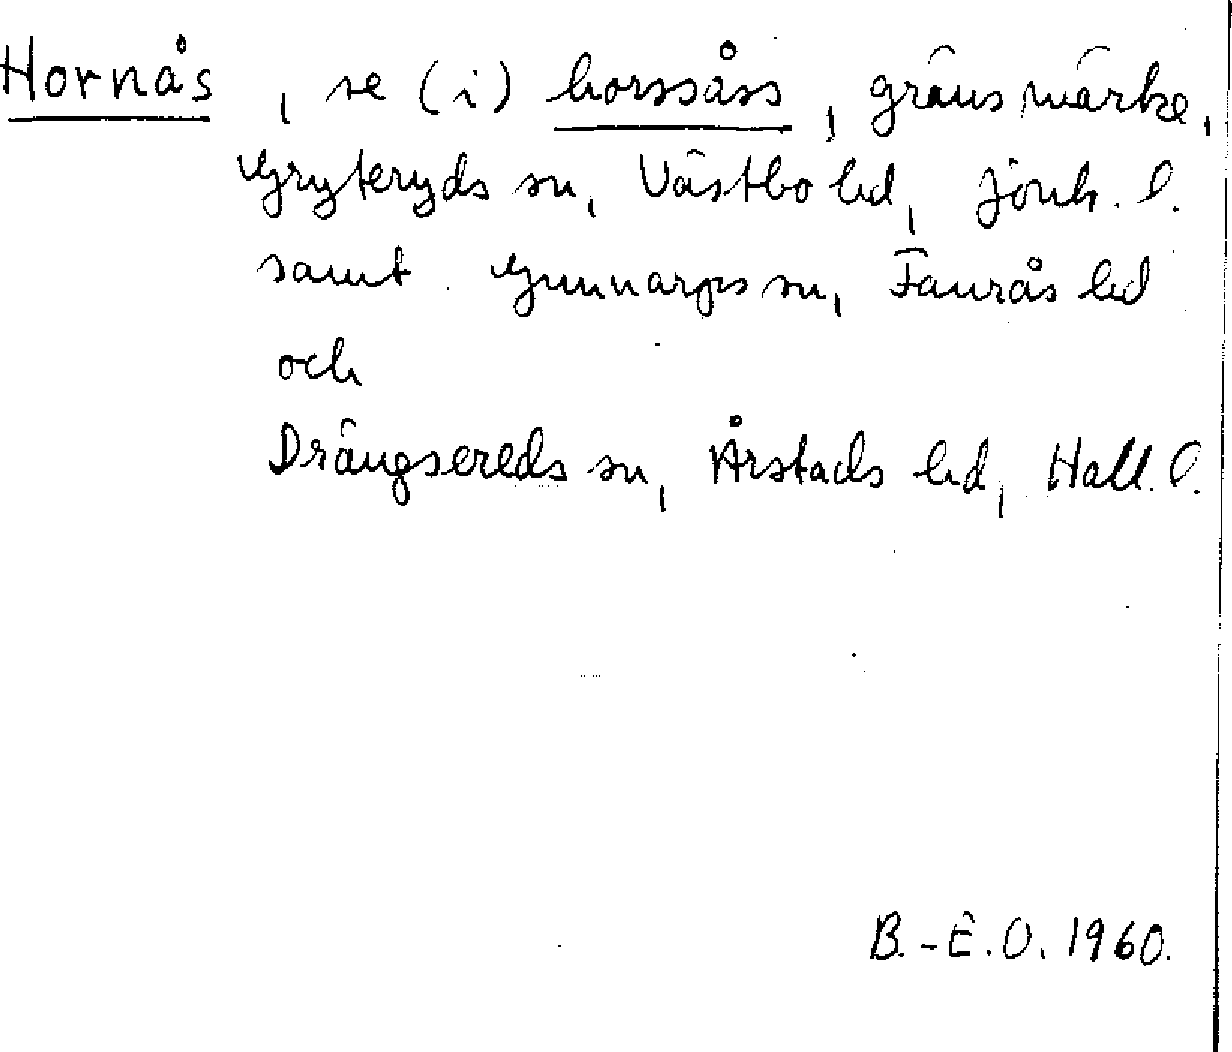 Hornås, se (i) horssåss, gränsmärke,
Gryteryds sn, Västbo hd, Jönk. l.
samt Gunnarps sn, Faurås hd
och
Drängsereds sn, Årstads hd, Hall. l.
B.-E.O. 1960.